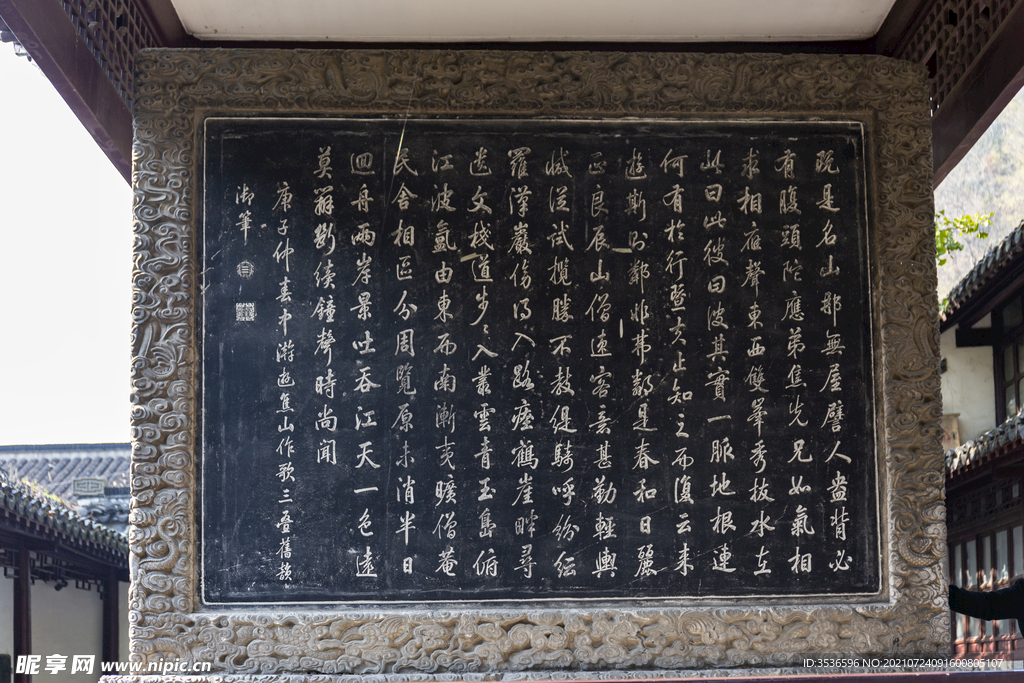 既是名山那無屋譬人盎背必
有腹頭陀應弟焦先兄如氣相
求相應聲東西雙峯秀拔水在
此曰此彼曰彼其實一脈地根連
何有於行 去止知之而復云来
遊斯 鄰非 鄰是春和日麗
正良辰山僧速客意甚勤輕輿
減從試攬勝不教緹騎呼紛紜
羅漢巖傍得入路瘞鶴崖畔尋
逸文棧道步〻入叢雲青玉島俯
江波氳由東而南漸夷曠僧菴
民舍相區分周覽原未消半日
迴舟兩岸景吐吞江天一色遠
莫辭斷續鐘聲時尚聞
庚子仲春中澣遊焦山作歌三疊舊韻
御筆
昵享网 www.nipic.cn
ID:3536596 NO:20210724091600805107